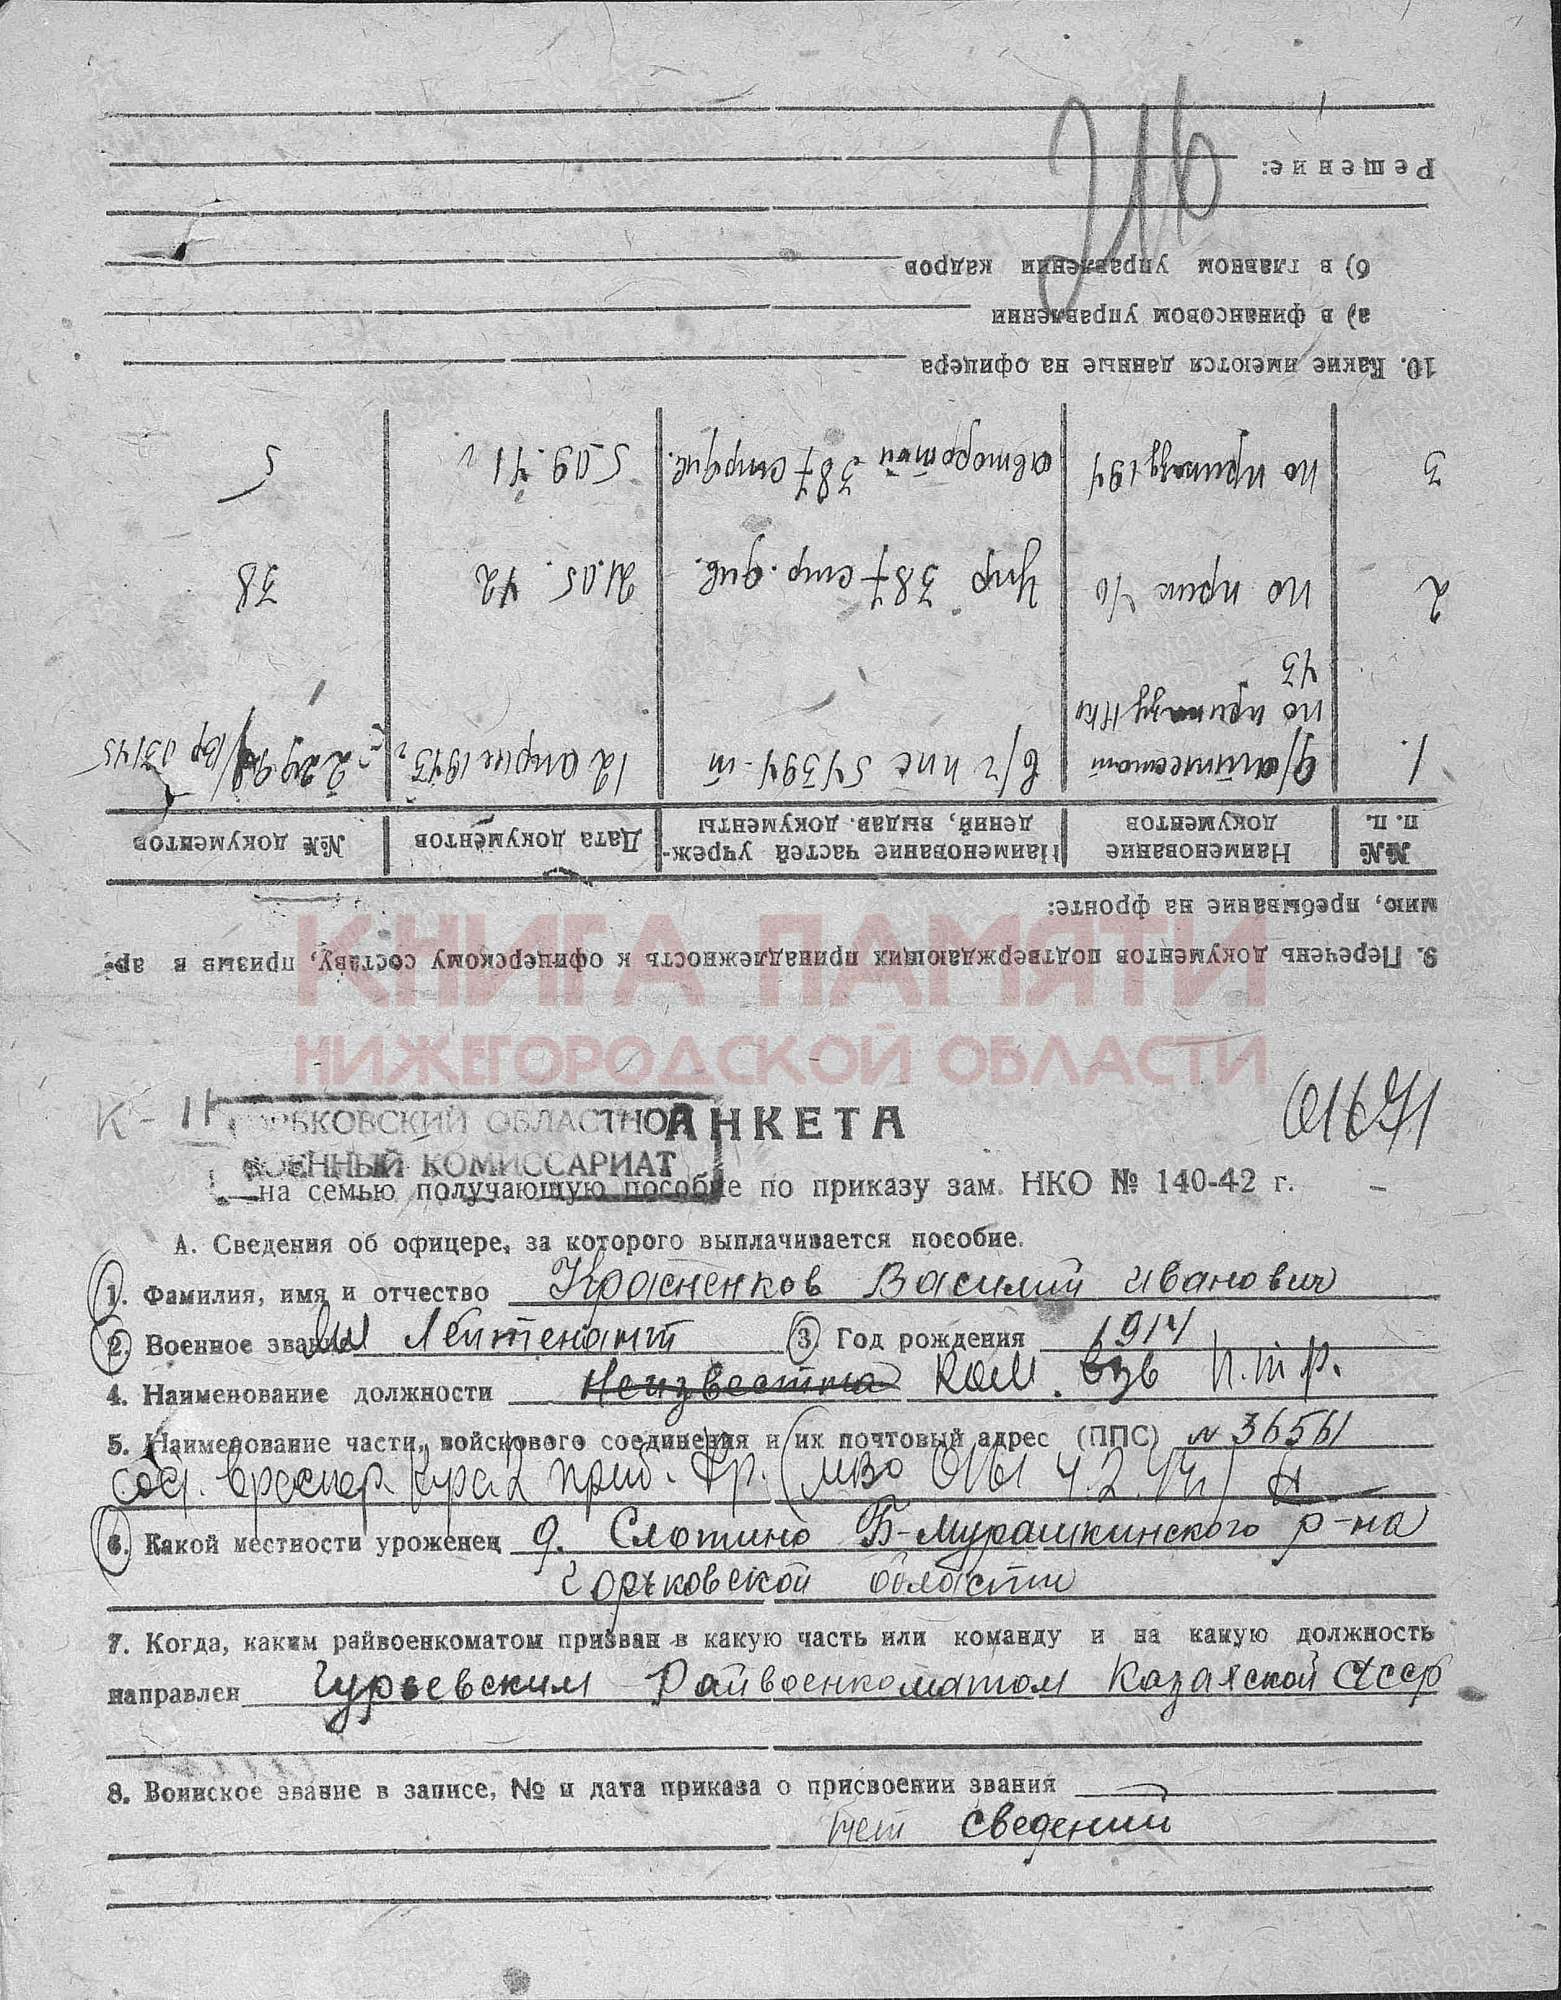 216
9. Перечень документов подтверждающих принадлежность к офицерскому составу, призыв в ар-
мию, пребывание на фронте:
№№ п. п. | Наименование документов | Наименование частей учреж-дений, выдав. документы | Дата документов | №№ документов
1. | д/аттестат по приказу НКО 43 | в/ч ппс 54394-т | 12 апреля 1943 г
2 | по прик 70 | Упр 387 стр. див. | 21.05.42 | 38
3 | по приказу 194 | авторотой 387 стр див. | 5.09.41 г | 5
10. Какие имеются данные на офицера
а) в финансовом управлении
б) в главном управлении кадров
Решение:
КНИГА ПАМЯТИ
НИЖЕГОРОДСКОЙ ОБЛАСТИ
К-11
ГОРЬКОВСКИЙ ОБЛАСТНОЙ
ВОЕННЫЙ КОМИССАРИАТ
01671
АНКЕТА
на семью получающую пособие по приказу зам. НКО № 140-42 г.
А. Сведения об офицере, за которого выплачивается пособие.
1. Фамилия, имя и отчество Красненков Василий Иванович
2. Военное звание Мл Лейтенант 3 Год рождения 1914
4. Наименование должности Неизвестна Ком. взв п.т.р.
5. Наименование части, войскового соединения и их почтовый адрес (ППС) № 36561
6. Какой местности уроженец д. Слотино Б-Мурашкинского р-на
Горьковской области
7. Когда, каким райвоенкоматом призван в какую часть или команду и на какую должность
направлен Гурьевским Райвоенкоматом Казахской ССР
8. Воинское звание в записе, № и дата приказа о присвоении звания
Нет сведений